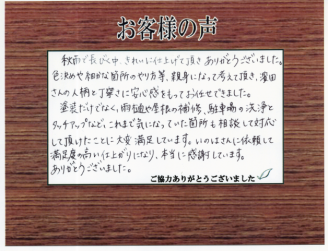 お客様の声
秋雨で長びく中、きれいに仕上げて頂きありがとうございました。
色決めや細かな箇所のやり方等、親身になって考えて頂き、濱田
さんの人柄と丁寧さに安心感をもってお任せできました。
塗装だけでなく、雨樋や屋根の補修、駐車場の洗浄と
タッチアップなど、これまで気になっていた箇所も相談して対応
して頂けたことに大変満足しています。いのはなに依頼して
満足度の高い仕上がりになり、本当に感謝しています。
ありがとうございました。
ご協力ありがとうございました